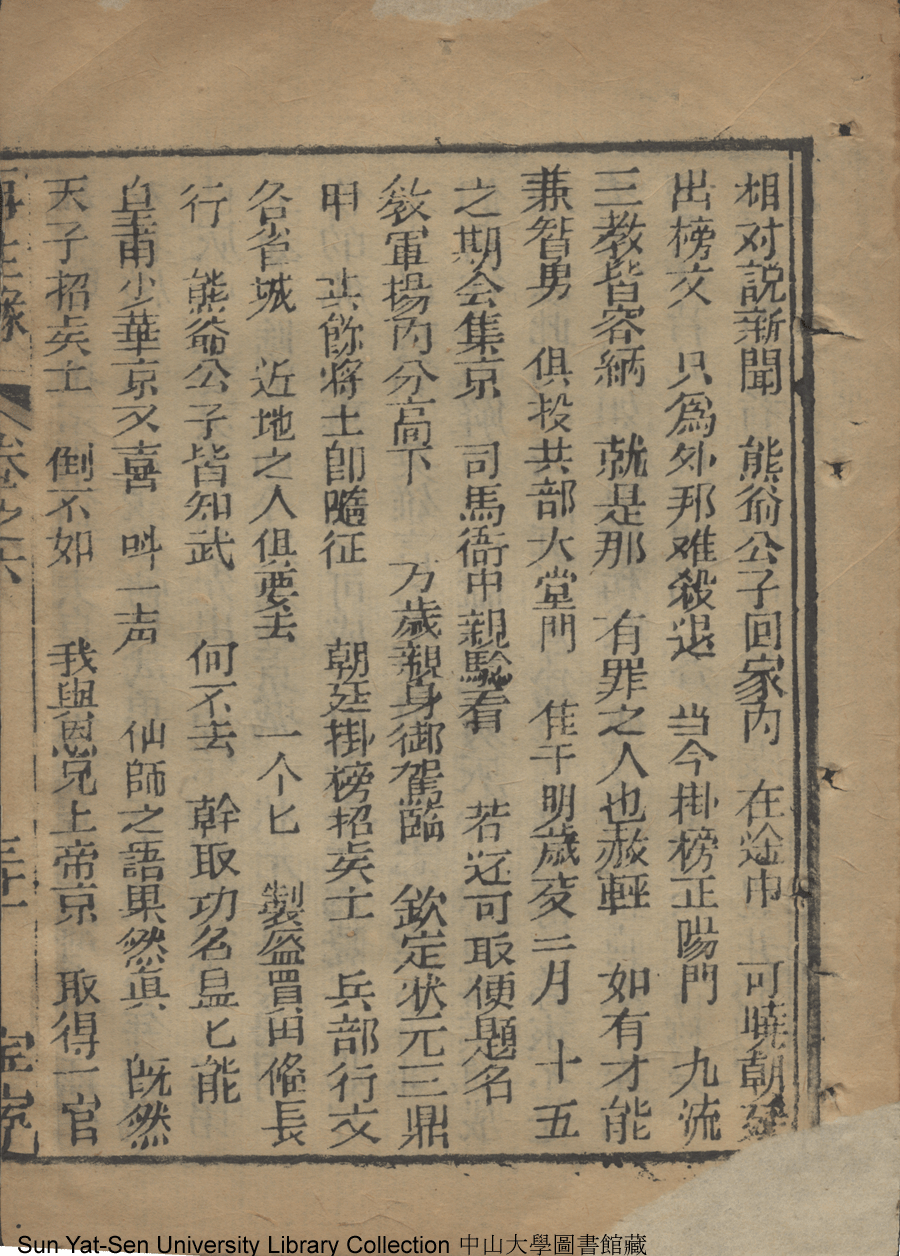 相对説新聞　熊爺公子回家内　在途中　可曉朝廷
出榜文　只為外邦难殺退　当今掛榜正陽門　九流
三教皆容納　就是那　有罪之人也赦輕　如有才能
兼智勇　俱投兵部大堂門　隹于明歲交二月　十五
之期会集京　司馬衙中親騐看　若还可取便題名
教軍場内分高下　万歲親身御駕臨　欽定状元三鼎
甲　其餘將士即隨征　朝廷掛榜招矣士　兵部行文
各省城　近地之人俱要去　一个匕　製盔買甲俻長
行　熊爺公子皆知武　何不去　幹取功名显匕能
皇甫少華京又喜　呌一声　仙師之語果然真　既然
天子招矣士　倒不如　我與恩兄上帝京　取得一官
再生緣　卷之六　三十一　宝寧
Sun Yat-Sen University Library Collection 中山大學圖書館藏